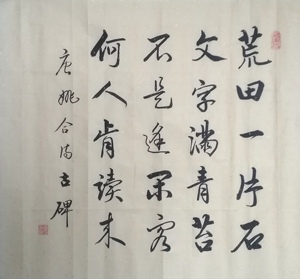 荒田一片石
文字满青苔
不是逢闲客
何人肯读来
唐姚合诗古碑